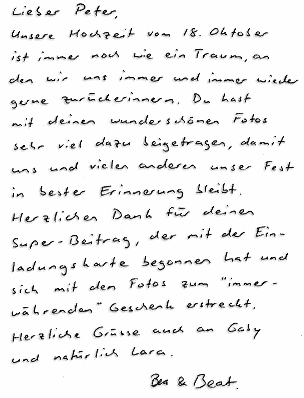 Lieber Peter,
Unsere Hochzeit vom 18. Oktober
ist immer noch wie ein Traum, an
den wir uns immer und immer wieder
gerne zurückerinnern. Du hast
mit deinen wunderschönen Fotos
sehr viel dazu beigetragen, damit
uns und vielen anderen unser Fest
in bester Erinnerung bleibt.
Herzlichen Dank für deinen
Super-Beitrag, der mit der Ein-
ladungskarte begonnen hat und
sich mit den Fotos zum "immer-
währenden" Geschenk erstreckt.
Herzliche Grüsse auch an Gaby
und natürlich Lara.
Bea & Beat.